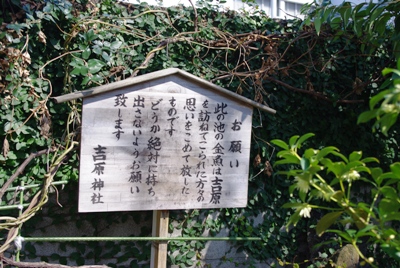 お願い
此の池の金魚は吉原
を訪ねてこられた方々の
思いをこめて放した
ものです
どうか絶対に持ち
出さないようお願い
致します
吉原神社